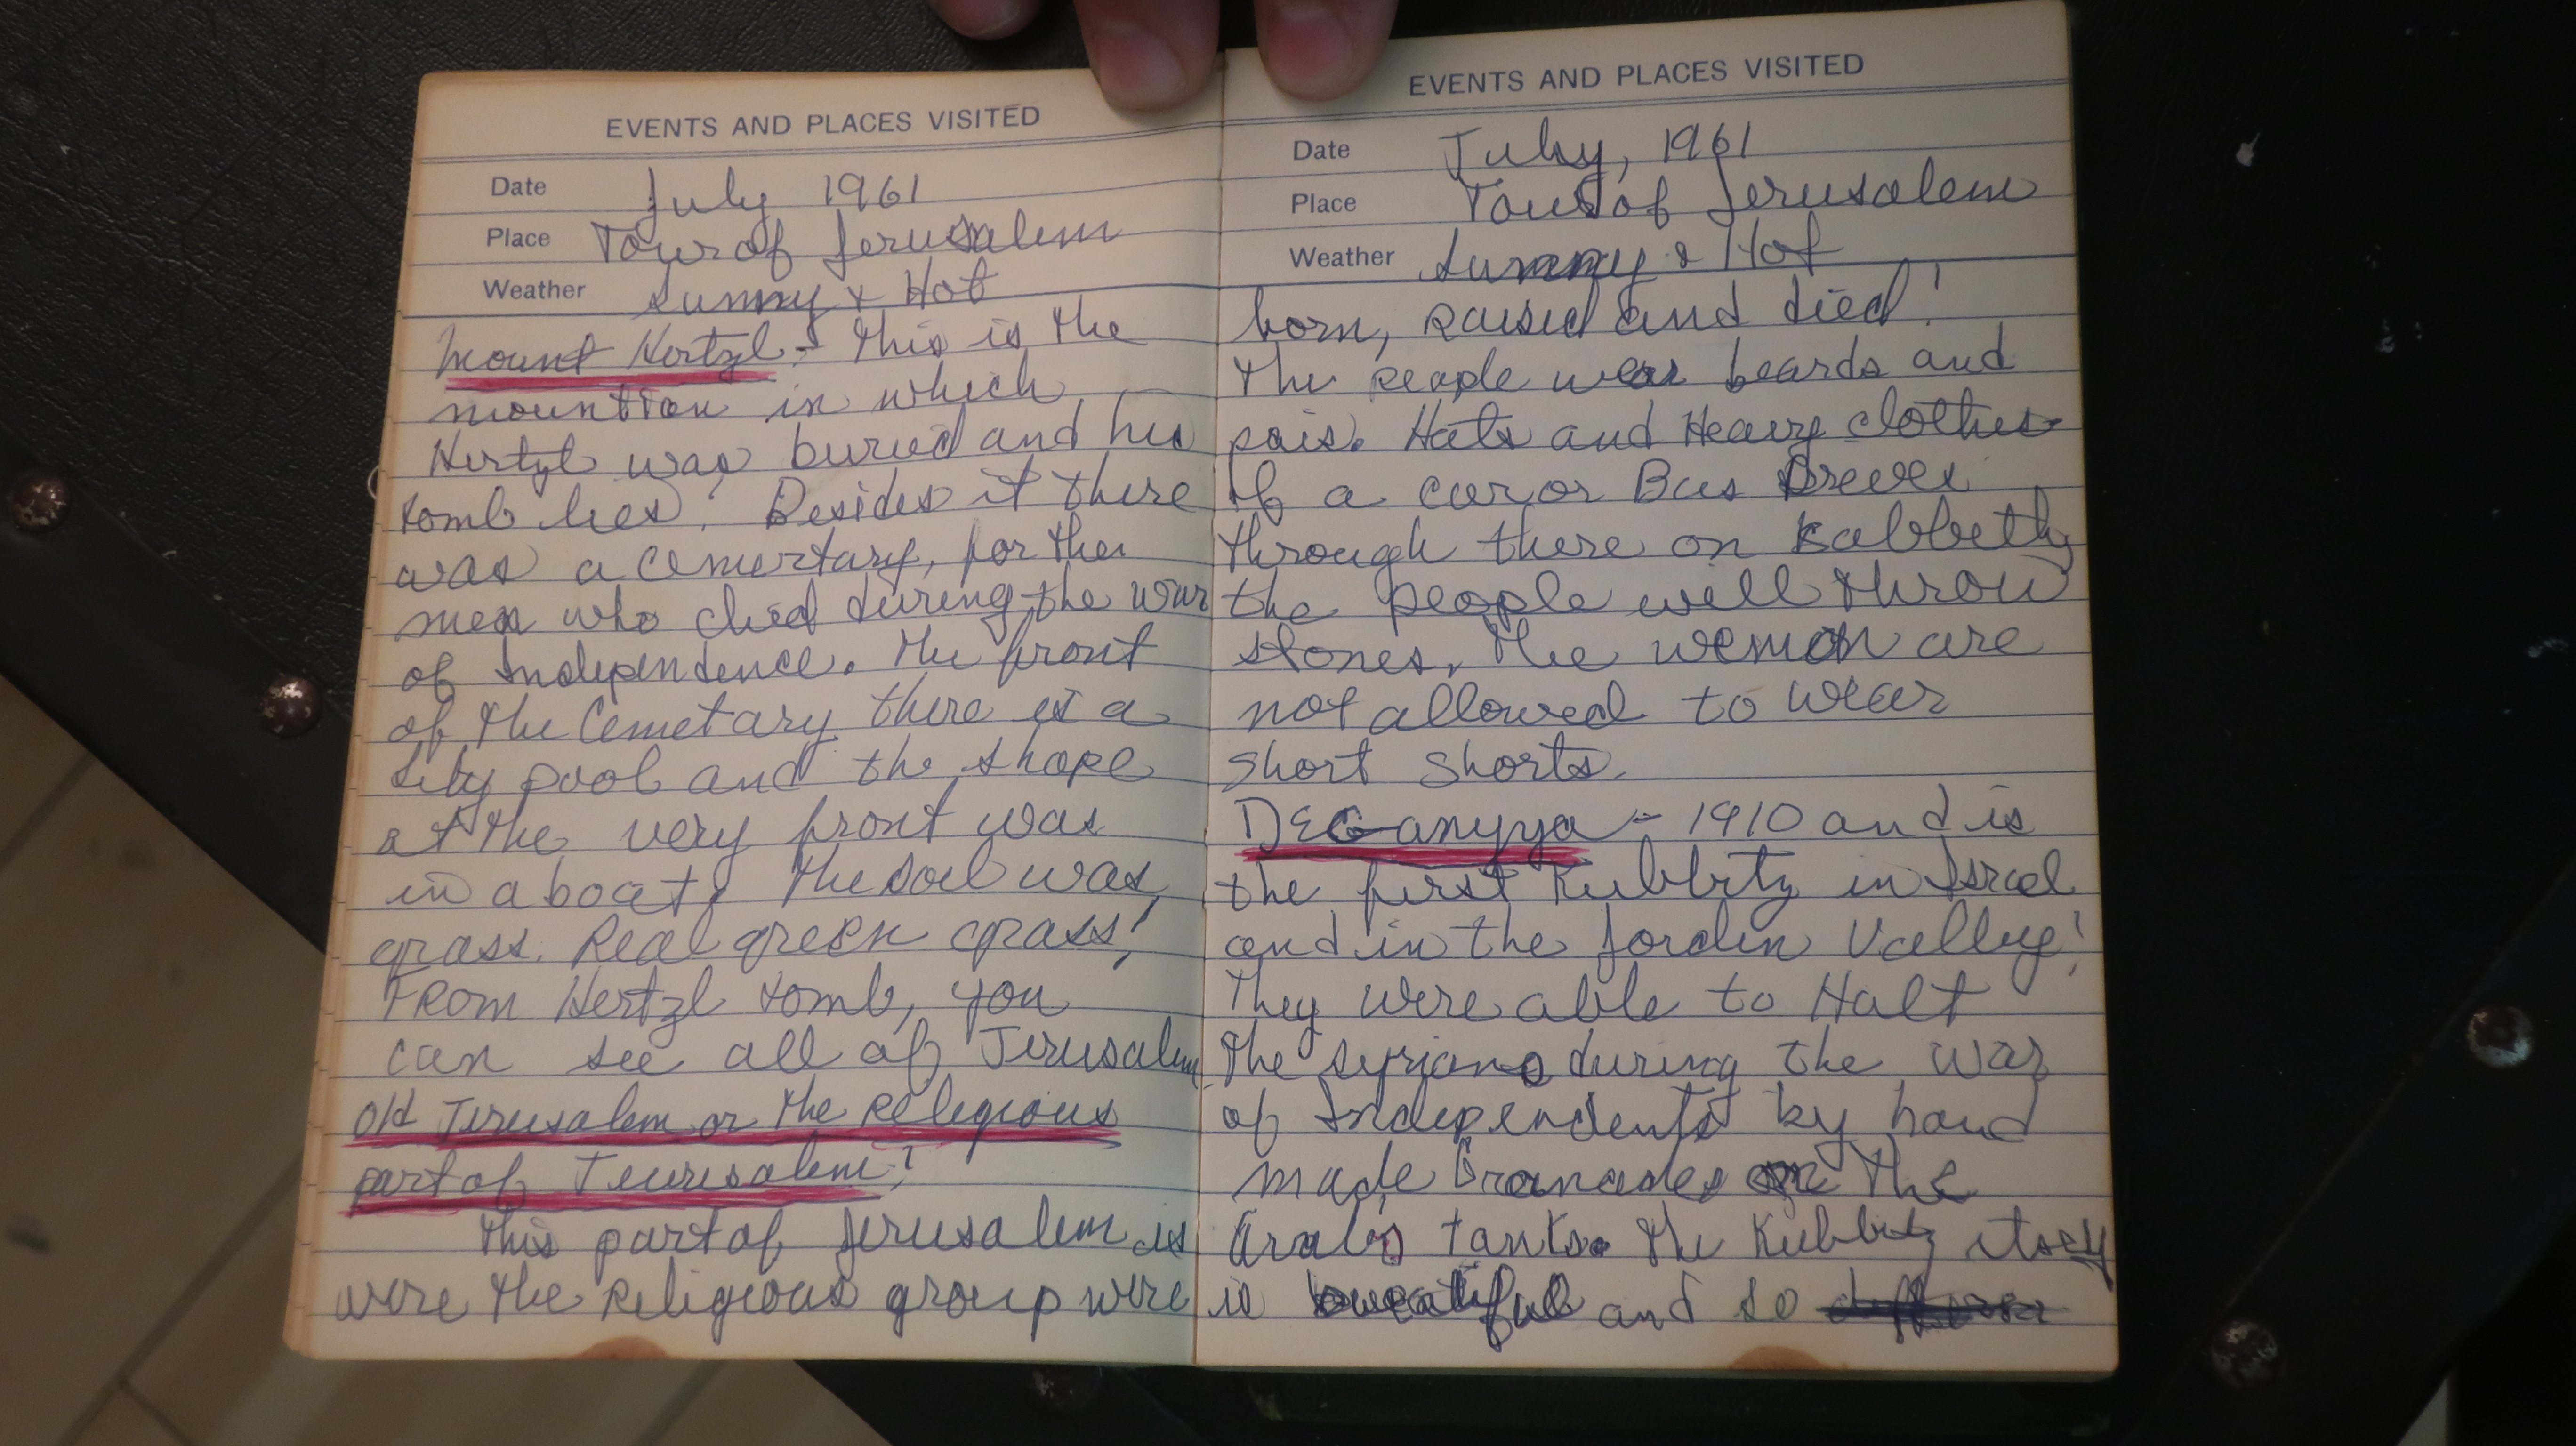 EVENTS AND PLACES VISITED
Date July 1961
Place Tour of Jerusalem
Weather Sunny & Hot
Mount Hertzl - This is the
mountion in which
Hertzl was buried and his
tomb lies. Besides it there
was a cemertary, for the
men who died during the war
of Independence. The front
of the Cemetary there is a
lily pool and the shape
at the very front was
in a boat. The soil was
grass. Real green grass!
From Hertzl tomb, you
can see all of Jerusalem
Old Jerusalem or the Religious
part of Jeurisalem!
This part of Jerusalem is
were the Religious group were
EVENTS AND PLACES VISITED
Date July, 1961
Place Tour of Jerusalem
Weather Sunny & Hot
born, raised and died!
The people wear beards and
pais. Hats and Heavy clothes
If a car or Bus Drives
through there on Sabbeth,
the people will throw
stones. The wemon are
not allowed to wear
short shorts.
DEGanyya - 1910 and is
the first Kubbitz in Israel
and in the Jordin Valley!
They were able to Halt
the syrians during the war
of Independents by hand
made Granades on the
Arab's tanks. The Kubbitz itself
is beautiful and so